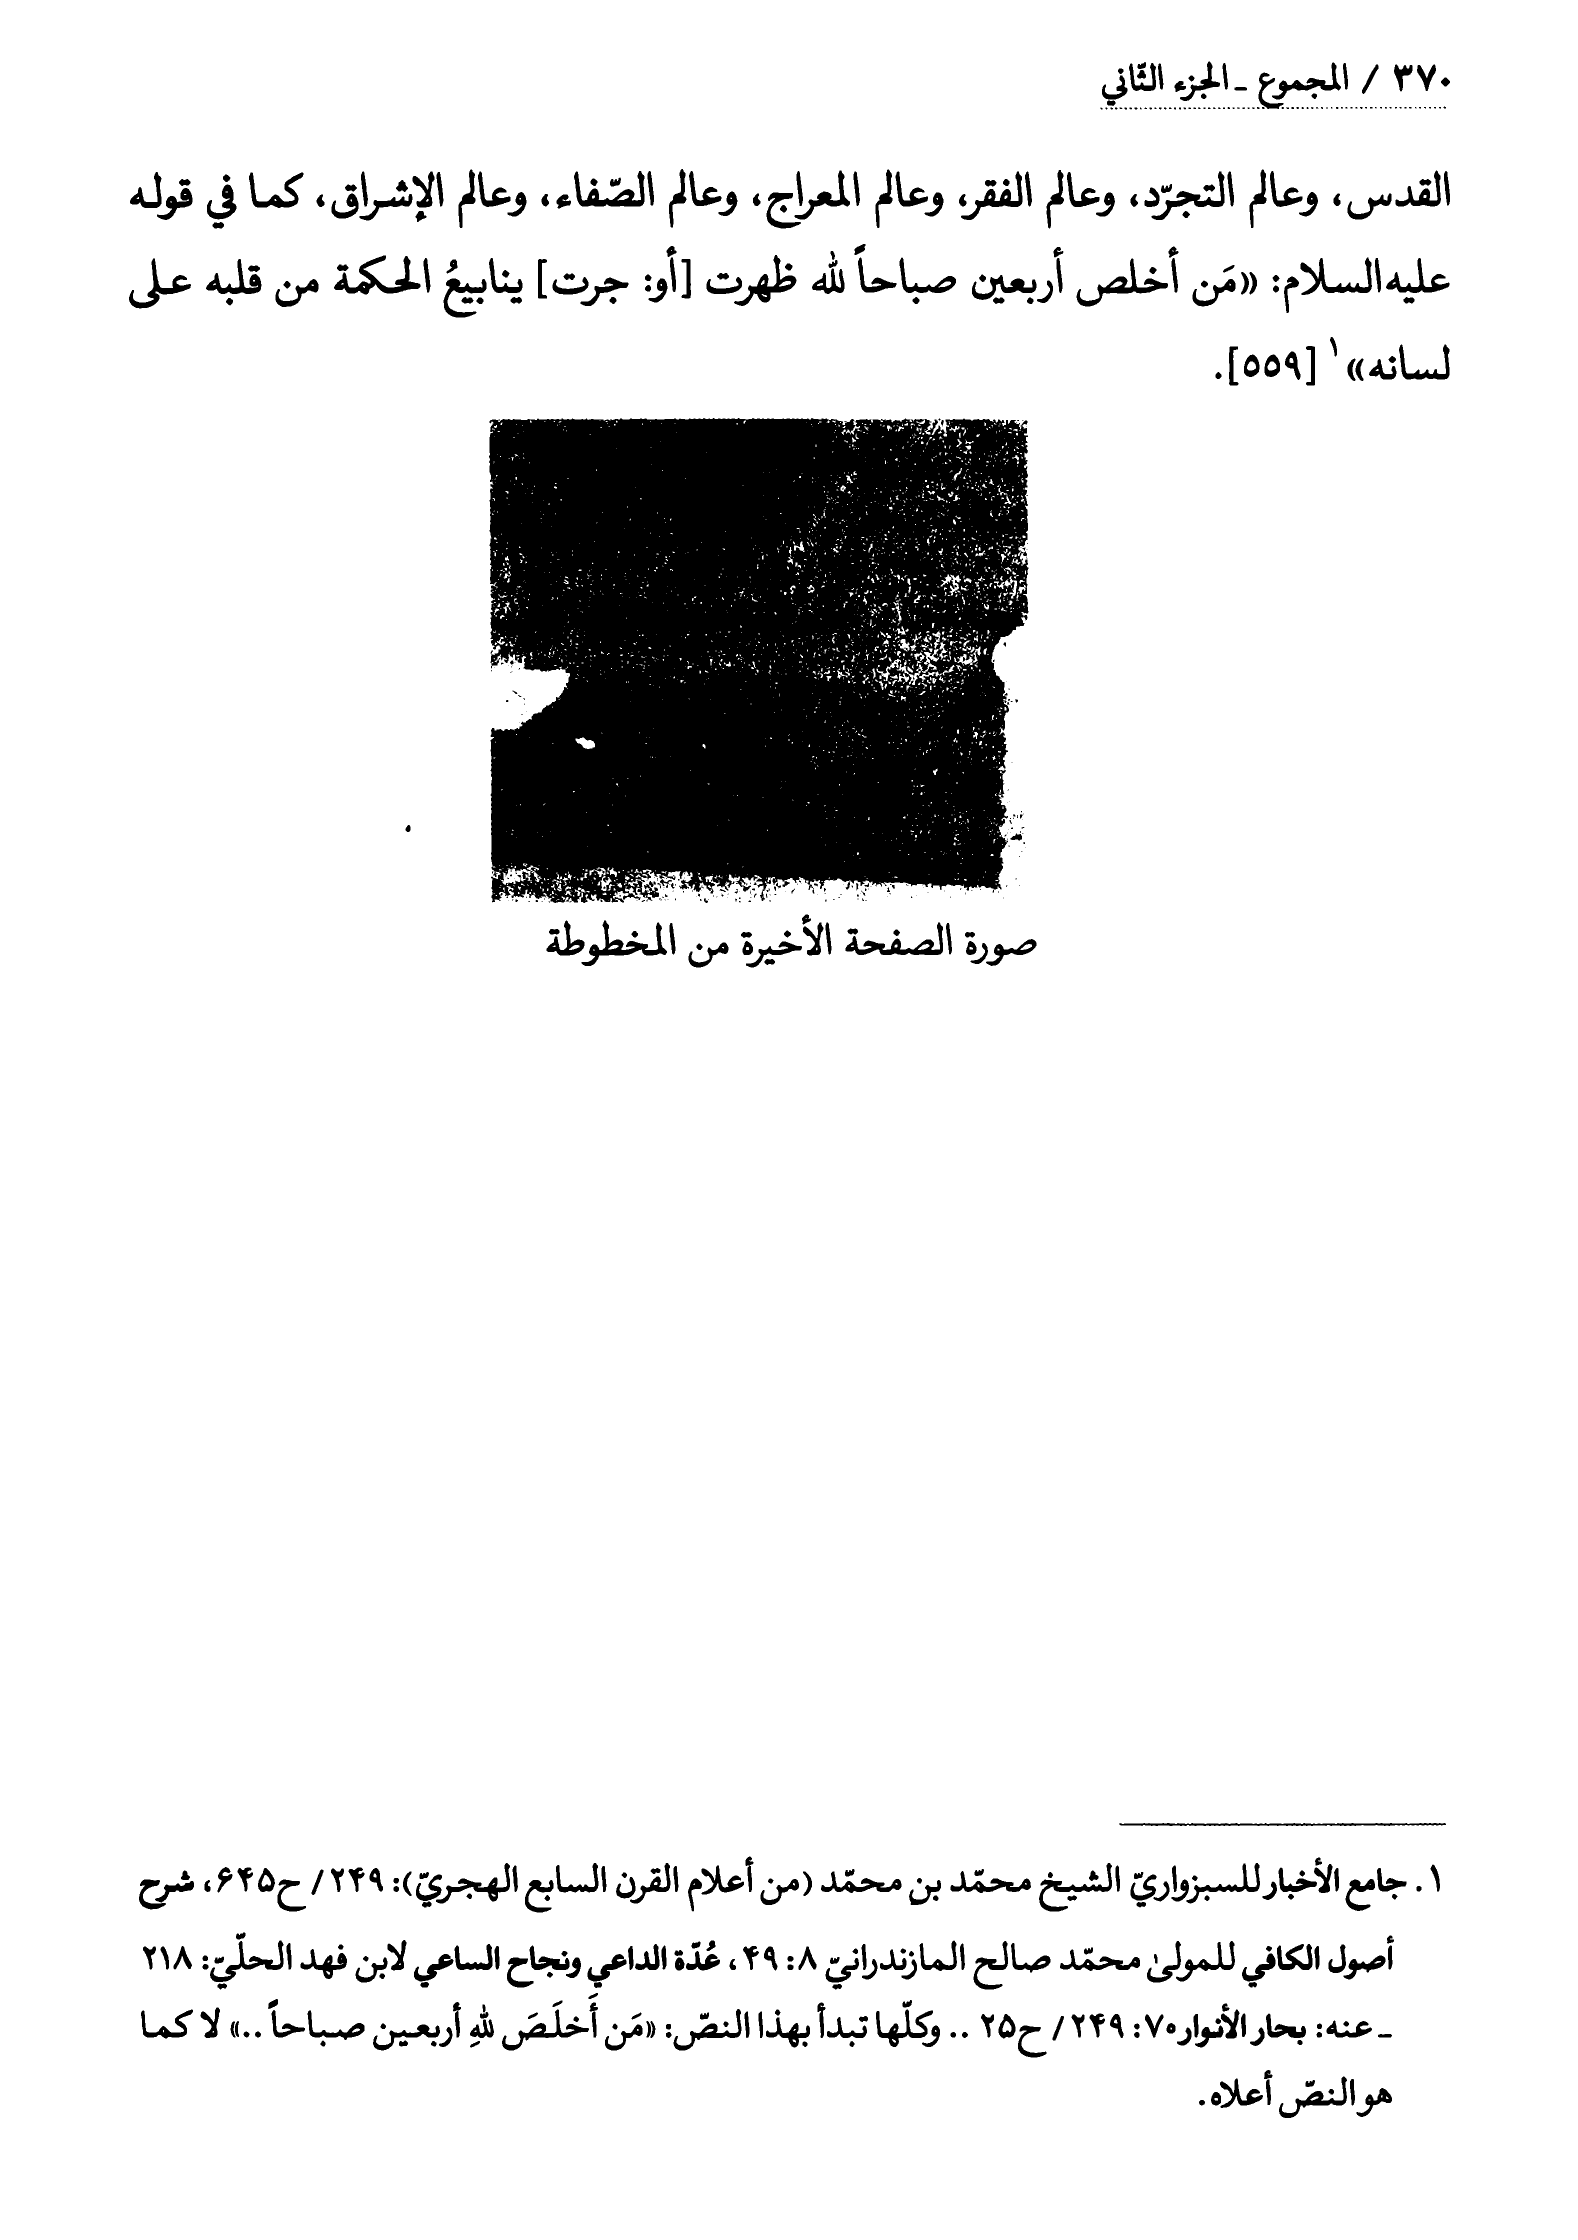 ٣٧٠ / المجموع ـ الجزء الثّاني
القدس، وعالم التجرّد، وعالم الفقر، وعالم المعراج، وعالم الصّفاء، وعالم الإشراق، كما في قوله
عليه‌السلام: «مَن أخلص أربعين صباحاً لله ظهرت [أو: جرت] ينابيعُ الحكمة من قلبه على
لسانه»١ [٥٥٩].
صورة الصفحة الأخيرة من المخطوطة
١. جامع الأخبار للسبزواريّ الشيخ محمّد بن محمّد (من أعلام القرن السابع الهجريّ): ٢۴٩ / ح۶۴۵، شرح
أصول الكافي للمولىٰ محمّد صالح المازندرانيّ ٨: ۴٩، عُدّة الداعي ونجاح الساعي لابن فهد الحلّيّ: ٢١٨
ـ عنه: بحار الأنوار٧٠: ٢۴٩ / ح٢۵ .. وكلّها تبدأ بهذا النصّ: «مَن أَخلَصَ للهِ أربعين صباحاً ..» لا كما
هو النصّ أعلاه.